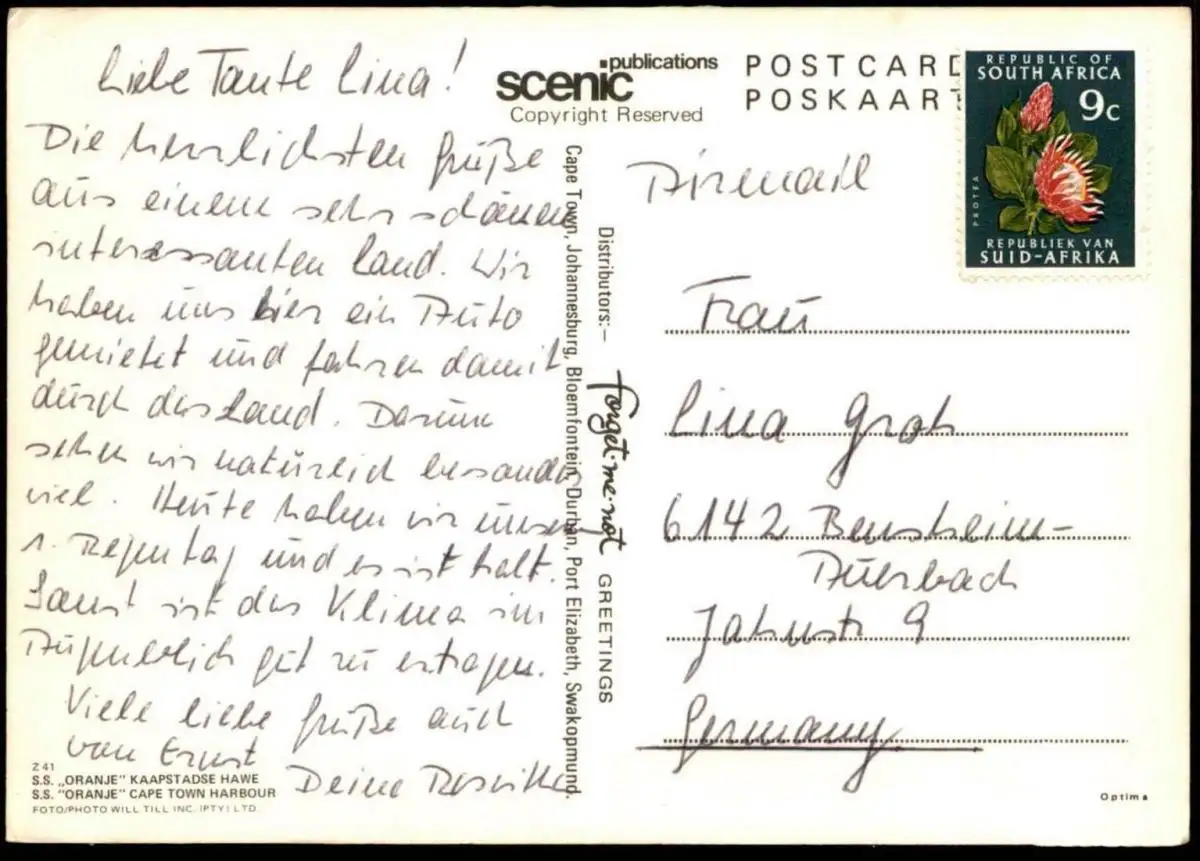 Liebe Tante Lina!
Die herzlichsten Grüße
aus einem sehr schönen
interessanten Land. Wir
haben uns hier ein Auto
gemietet und fahren damit
durch das Land. Darum
sehen wir natürlich besonders
viel. Heute haben wir unseren
1. Regentag und es ist kalt.
Sonst ist das Klima im
Augenblick gut zu ertragen.
Viele liebe Grüße auch
von Ernst
Deine
Z 41
S.S. „ORANJE" KAAPSTADSE HAWE
S.S. "ORANJE" CAPE TOWN HARBOUR
FOTO/PHOTO WILL TILL INC. (PTY) LTD.
scenic publications
Copyright Reserved
Cape Town, Johannesburg, Bloemfontein, Durban, Port Elizabeth, Swakopmund.
Distributors:—
forget·me·not GREETINGS
POSTCARD
POSKAART
REPUBLIC OF
SOUTH AFRICA
9c
PROTEA
REPUBLIEK VAN
SUID-AFRIKA
Airmail
Frau
Lina Groh
6142 Bensheim-
Auerbach
Jahnstr 9
Germany
Optima